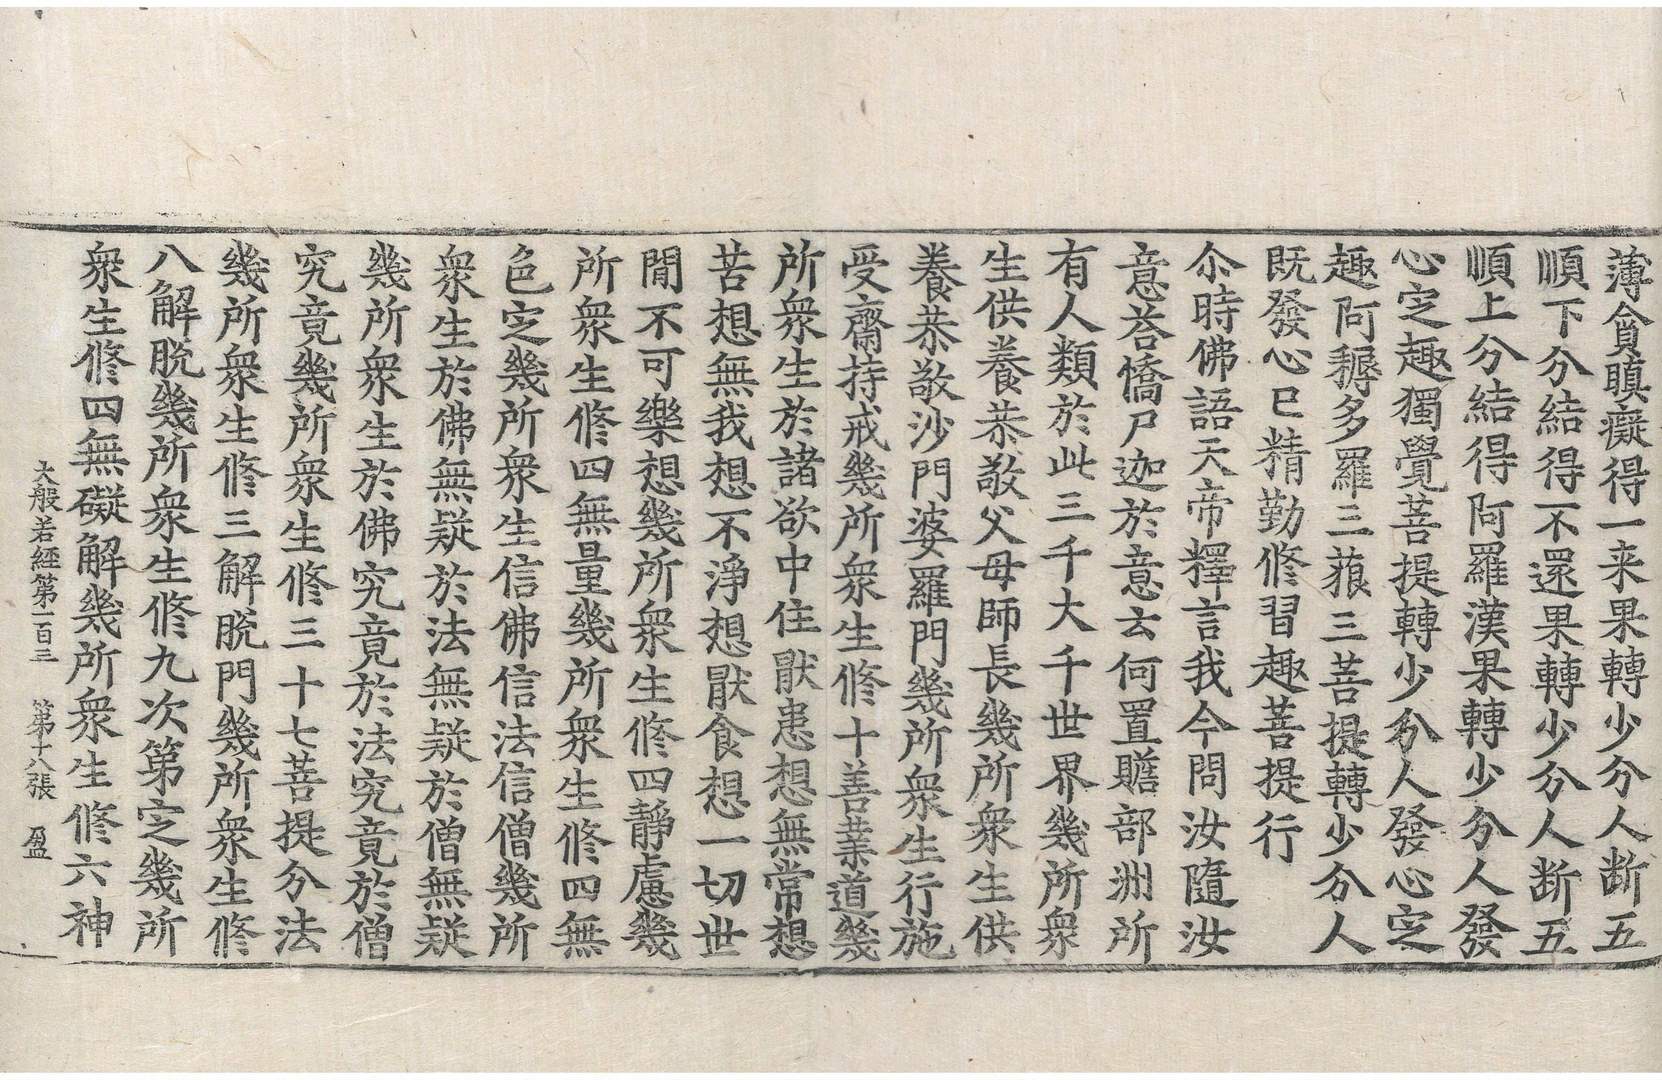 薄貪瞋癡得一来果轉少分人断五
順下分結得不還果轉少分人断五
順上分結得阿羅漢果轉少分人發
心㝎趣獨覺菩提轉少分人發心㝎
趣阿耨多羅三藐三菩提轉少分人
既發心已精勤修習趣菩提行
尒時佛語天帝釋言我今問汝隨汝
意荅憍尸迦於意云何置贍部洲所
有人類於此三千大千世界幾所衆
生供養恭敬父母師長幾所衆生供
養恭敬沙門婆羅門幾所衆生行施
受齋持戒幾所衆生修十善業道幾
所衆生於諸欲中住猒患想無常想
苦想無我想不淨想猒食想一切世
閒不可樂想幾所衆生修四靜慮幾
所衆生修四無量幾所衆生修四無
色㝎幾所衆生信佛信法信僧幾所
衆生於佛無疑於法無疑於僧無疑
幾所衆生於佛究竟於法究竟於僧
究竟幾所衆生修三十七菩提分法
幾所衆生修三解脫門幾所衆生修
八解脫幾所衆生修九次第㝎幾所
衆生修四無礙解幾所衆生修六神
大般若經第一百三 第十八張 盈